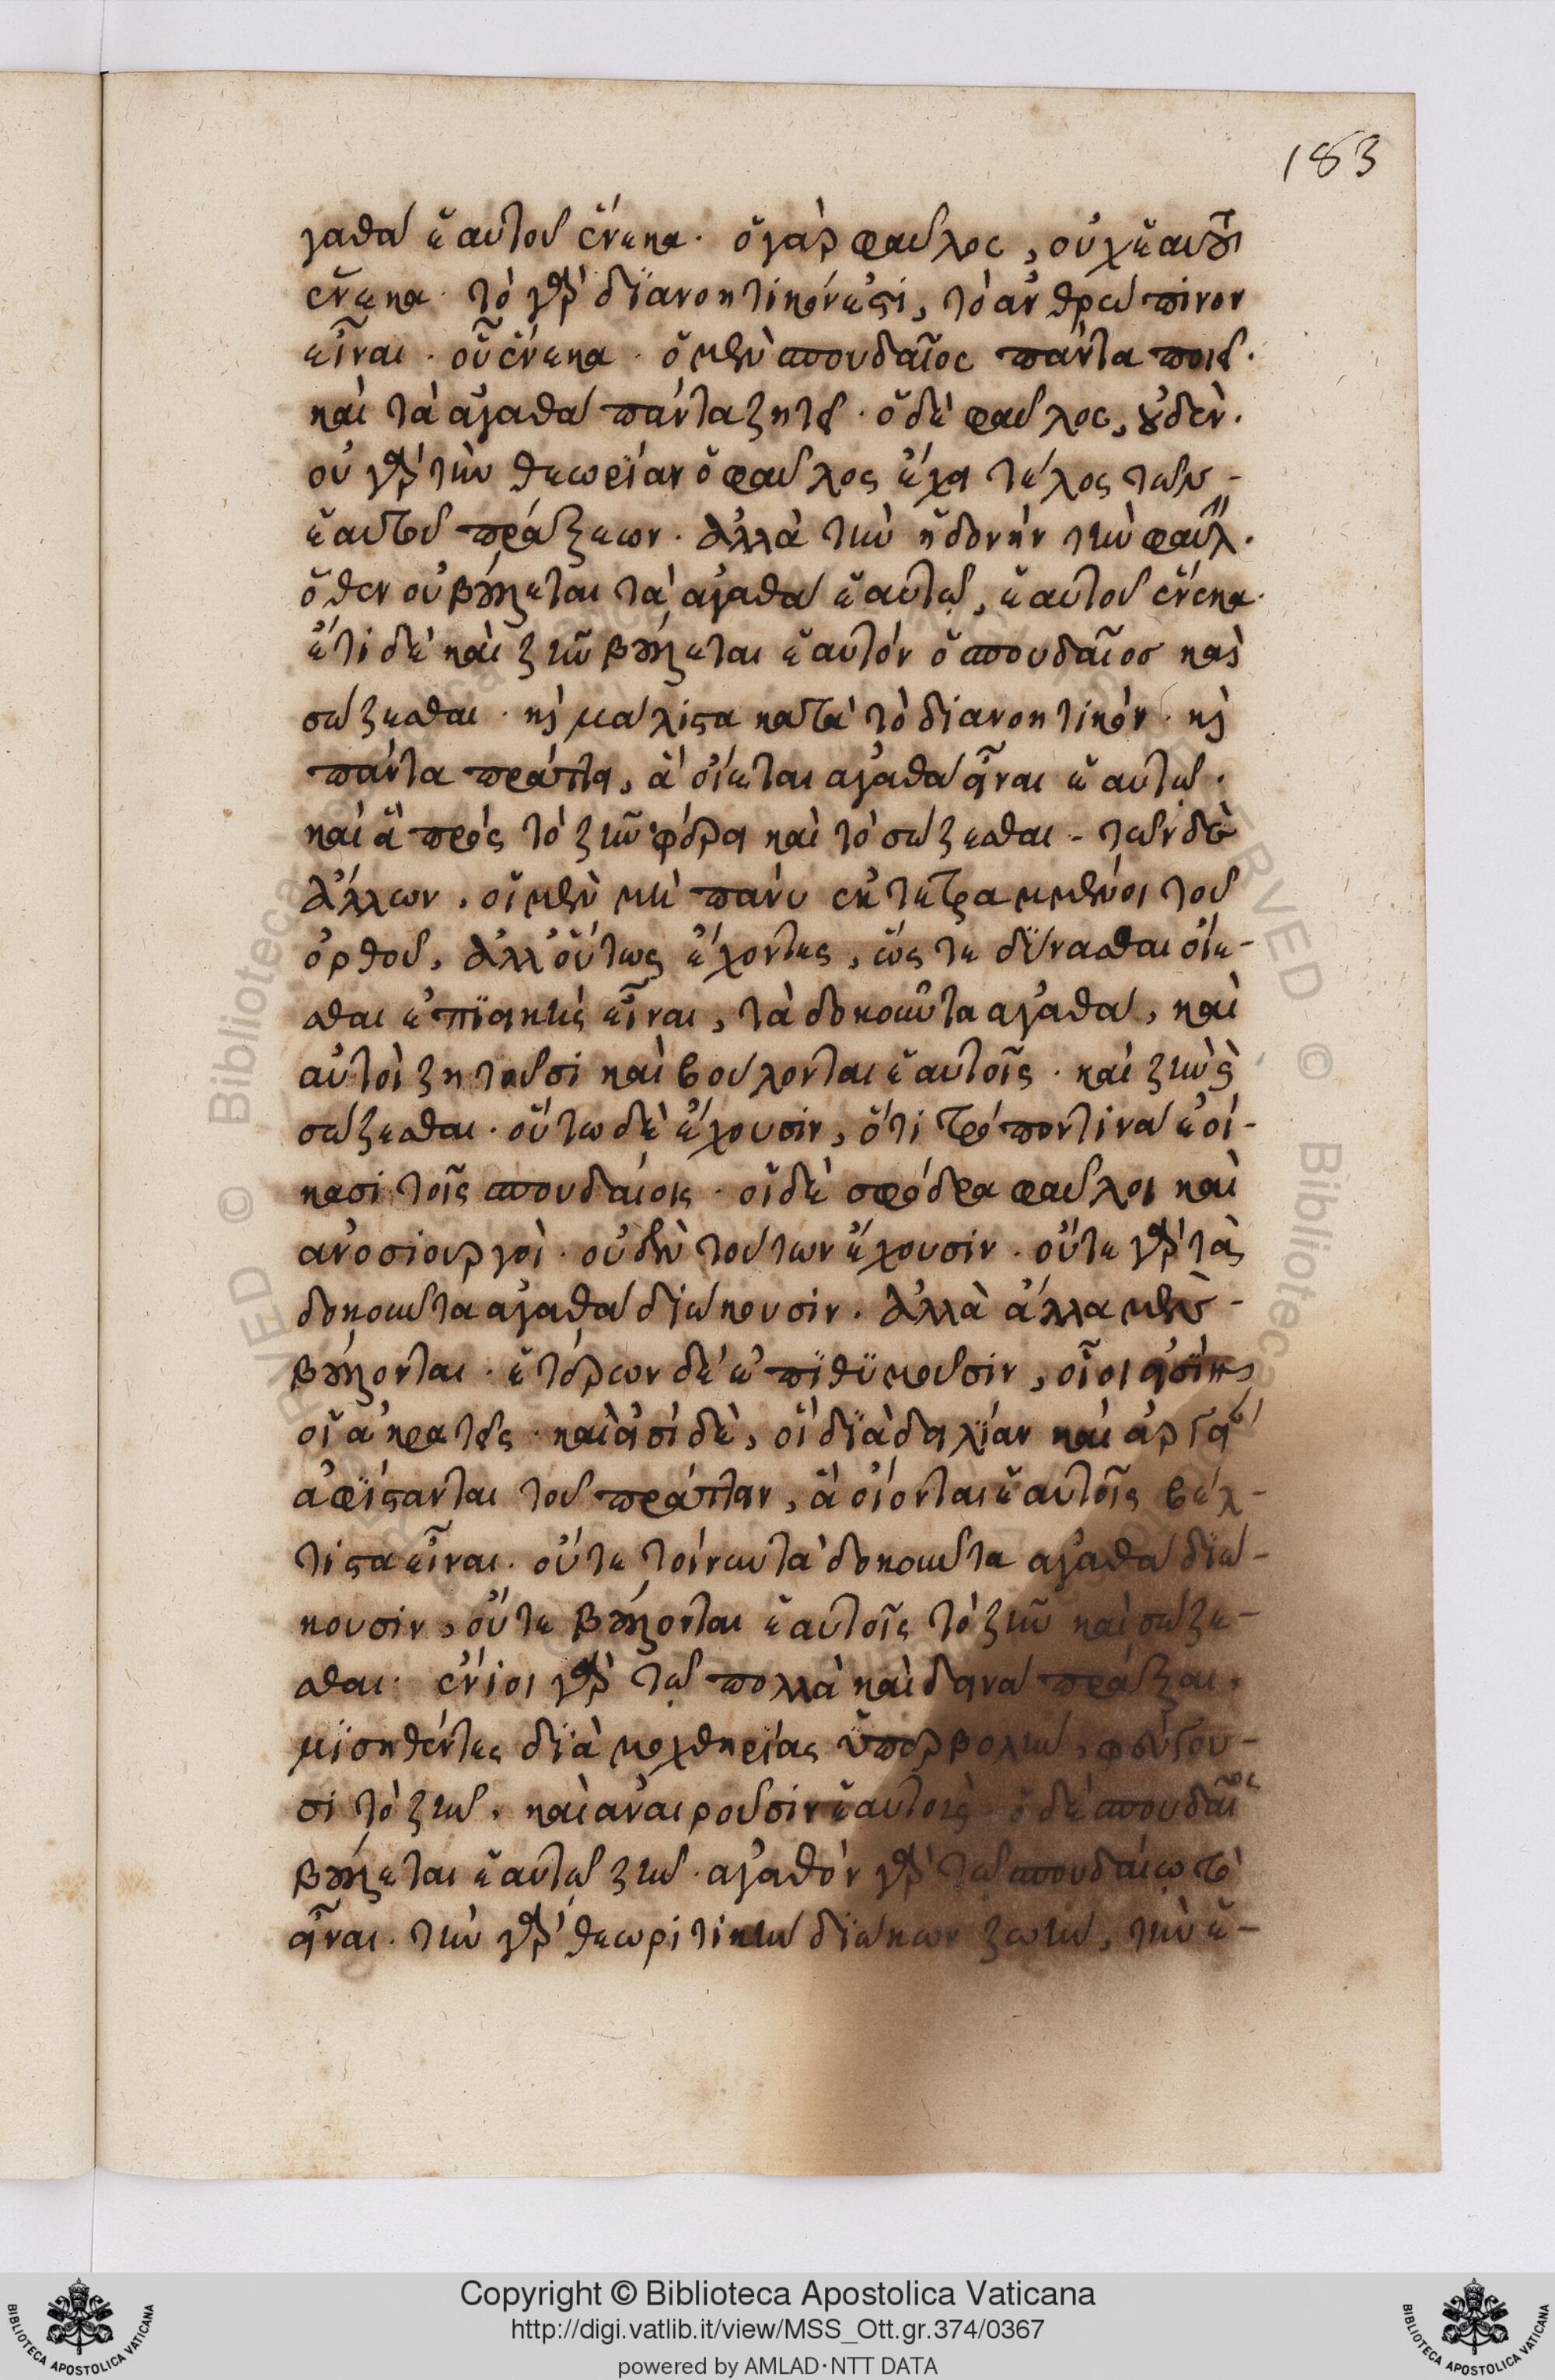 183
γαθὰ ἑαυτοῦ ἕνεκα. ὁ γὰρ φαῦλος, οὐχ ἑαυτοῦ
ἕνεκα. τὸ γὰρ διανοητικόν ἐστι, τὸ ἀνθρώπινον
εἶναι. οὗ ἕνεκα. ὁ μὲν σπουδαῖος πάντα ποιεῖ.
καὶ τὰ ἀγαθὰ πάντα ζητεῖ. ὁ δὲ φαῦλος, οὐδέν.
οὐ γὰρ τὴν θεωρίαν ὁ φαῦλος ἔχει τέλος τῶν -
ἑαυτοῦ πράξεων. ἀλλὰ τὴν ἡδονήν τὴν φαύλ.
ὅθεν οὐ βούλεται τὰ ἀγαθὰ ἑαυτῷ, ἑαυτοῦ ἕνεκα.
ἔτι δὲ καὶ ζῆν βούλεται ἑαυτόν ὁ σπουδαῖος καὶ
σώζεσθαι. καὶ μάλιστα κατὰ τὸ διανοητικόν. καὶ
πάντα πράττει, ἃ οἴεται ἀγαθὰ εἶναι ἑαυτῷ.
καὶ ἃ πρὸς τὸ ζῆν φέρει καὶ τὸ σώζεσθαι - τῶν δὲ
ἄλλων, οἱ μὲν μὴ πάνυ ἐκτετραμμένοι τοῦ
ὀρθοῦ, ἀλλ' οὕτως ἔχοντες, ὥς τε δύνασθαι οἴε-
σθαι ἐπιεικεῖς εἶναι, τὰ δοκοῦντα ἀγαθὰ, καὶ
αὐτοὶ ζητοῦσι καὶ βούλονται ἑαυτοῖς. καὶ ζῆν καὶ
σώζεσθαι. οὕτω δὲ ἔχουσιν, ὅτι τρόπον τινὰ ἐοί-
κασι τοῖς σπουδαίοις. οἱ δὲ σφόδρα φαῦλοι καὶ
ἀνοσιουργοὶ. οὐδὲν τούτων ἔχουσιν. οὔτε γὰρ τὰ
δοκοῦντα ἀγαθὰ διώκουσιν. ἀλλὰ ἄλλα μὲν -
βούλονται. ἑτέρων δὲ ἐπιθυμοῦσιν, οἷοι εἰσίν
οἱ ἀκρατεῖς. καὶ εἰσὶ δὲ, οἳ διὰ δειλίαν καὶ ἀργίαν
ἀφίστανται τοῦ πράττειν, ἃ οἴονται ἑαυτοῖς βέλ-
τιστα εἶναι. οὔτε τοίνυν τὰ δοκοῦντα ἀγαθὰ διώ-
κουσιν, οὔτε βούλονται ἑαυτοῖς τὸ ζῆν καὶ σώζε-
σθαι. ἔνιοι γὰρ τῷ πολλὰ καὶ δεινὰ πρᾶξαι.
μισηθέντες διὰ μοχθηρίας ὑπερβολὴν, φεύγου-
σι τὸ ζῆν. καὶ ἀναιροῦσιν ἑαυτοὺς. ὁ δὲ σπουδαῖος
βούλεται ἑαυτῷ ζῆν. ἀγαθόν γὰρ τῷ σπουδαίῳ τὸ
εἶναι. τὴν γὰρ θεωριτικὴν διώκων ζωὴν, τὴν ἑ-
Copyright © Biblioteca Apostolica Vaticana
http://digi.vatlib.it/view/MSS_Ott.gr.374/0367
powered by AMLAD·NTT DATA
BIBLIOTECA APOSTOLICA VATICANA
BIBLIOTECA APOSTOLICA VATICANA